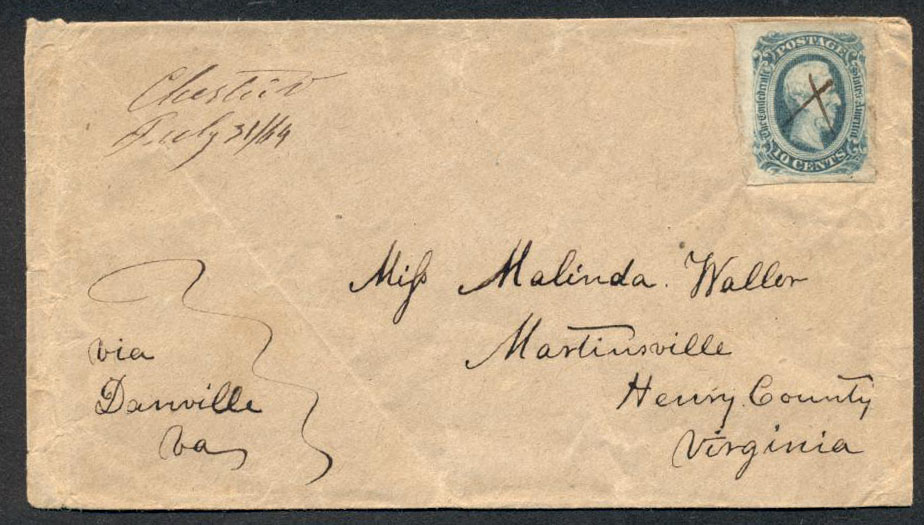 Chester V
July 31/64
POSTAGE
The Confederate States America
10 CENTS
Miss Malinda. Waller
Martinsville
Henry County
Virginia
via
Danville
va